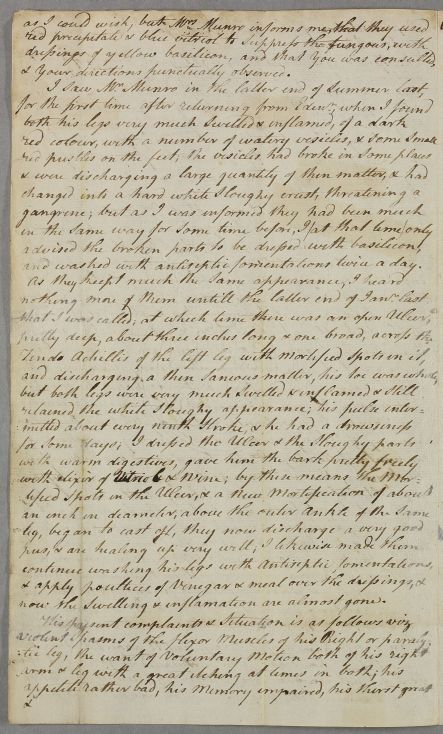 as I could wish; but Mrs. Munro informs me, that they used
red precipitate & blue vitriol to suppress the fungous, with
dressings of yellow basilicon, and that you was consulted
& your directions punctually observed.
I saw Mr. Munro in the latter end of Summer last
for the first time after returning from Edinr, when I found
both his legs very much swelled & inflamed, of a dark
red colour, with a number of watery vesicles, & some small
red pustles on the feet; the vesicles had broke in some places
& were discharging a large quantity of thin matter, & had
changed into a hard white sloughy crust, threatening a
gangrene; but as I was informed they had been much
in the same way for some time before, I at that time only
advised the broken parts to be dressed with basilicon,
and washed with antiseptic fomentations twice a day.
As they keept much the same appearance, I heard
nothing more of them untill the latter end of Janry. last
that I was called, at which time there was an open Ulcer,
pretty deep, about three inches long & one broad, across the
Tendo Achillis of the left leg with Mortified Spots in it,
and discharging a thin Sanious matter, his toe was whole,
but both legs were very much swelled & inflamed & still
retained the white sloughy appearance; his pulse inter-
mitted about every ninth stroke, & he had a drowsiness
for some days; I dressed the Ulcer & the Sloughy parts
with warm digestives, gave him the bark pretty freely
with Elixir of Vitriol & Wine; by this means the Mor-
tified Spots in the Ulcer, & a New Mortification of about
an inch in diameter, above the outer Ankle of the Same
leg, began to cast off, they now discharge a very good
pus, & are healing up very well; I likewise made them
continue washing his legs with Antiseptic fomentations,
& apply poultices of Vinegar & meal over the dressings, &
now the Swelling & inflamation are almost gone.
His present complaints & Situation is as follows viz
violent Spasms of the flexor Muscles of his Right or paraly-
tic leg, the want of Voluntary Motion both of his right
arm & leg with a great itching at times in both; his
appetite rather bad, his Memory impaired, his thirst great
&